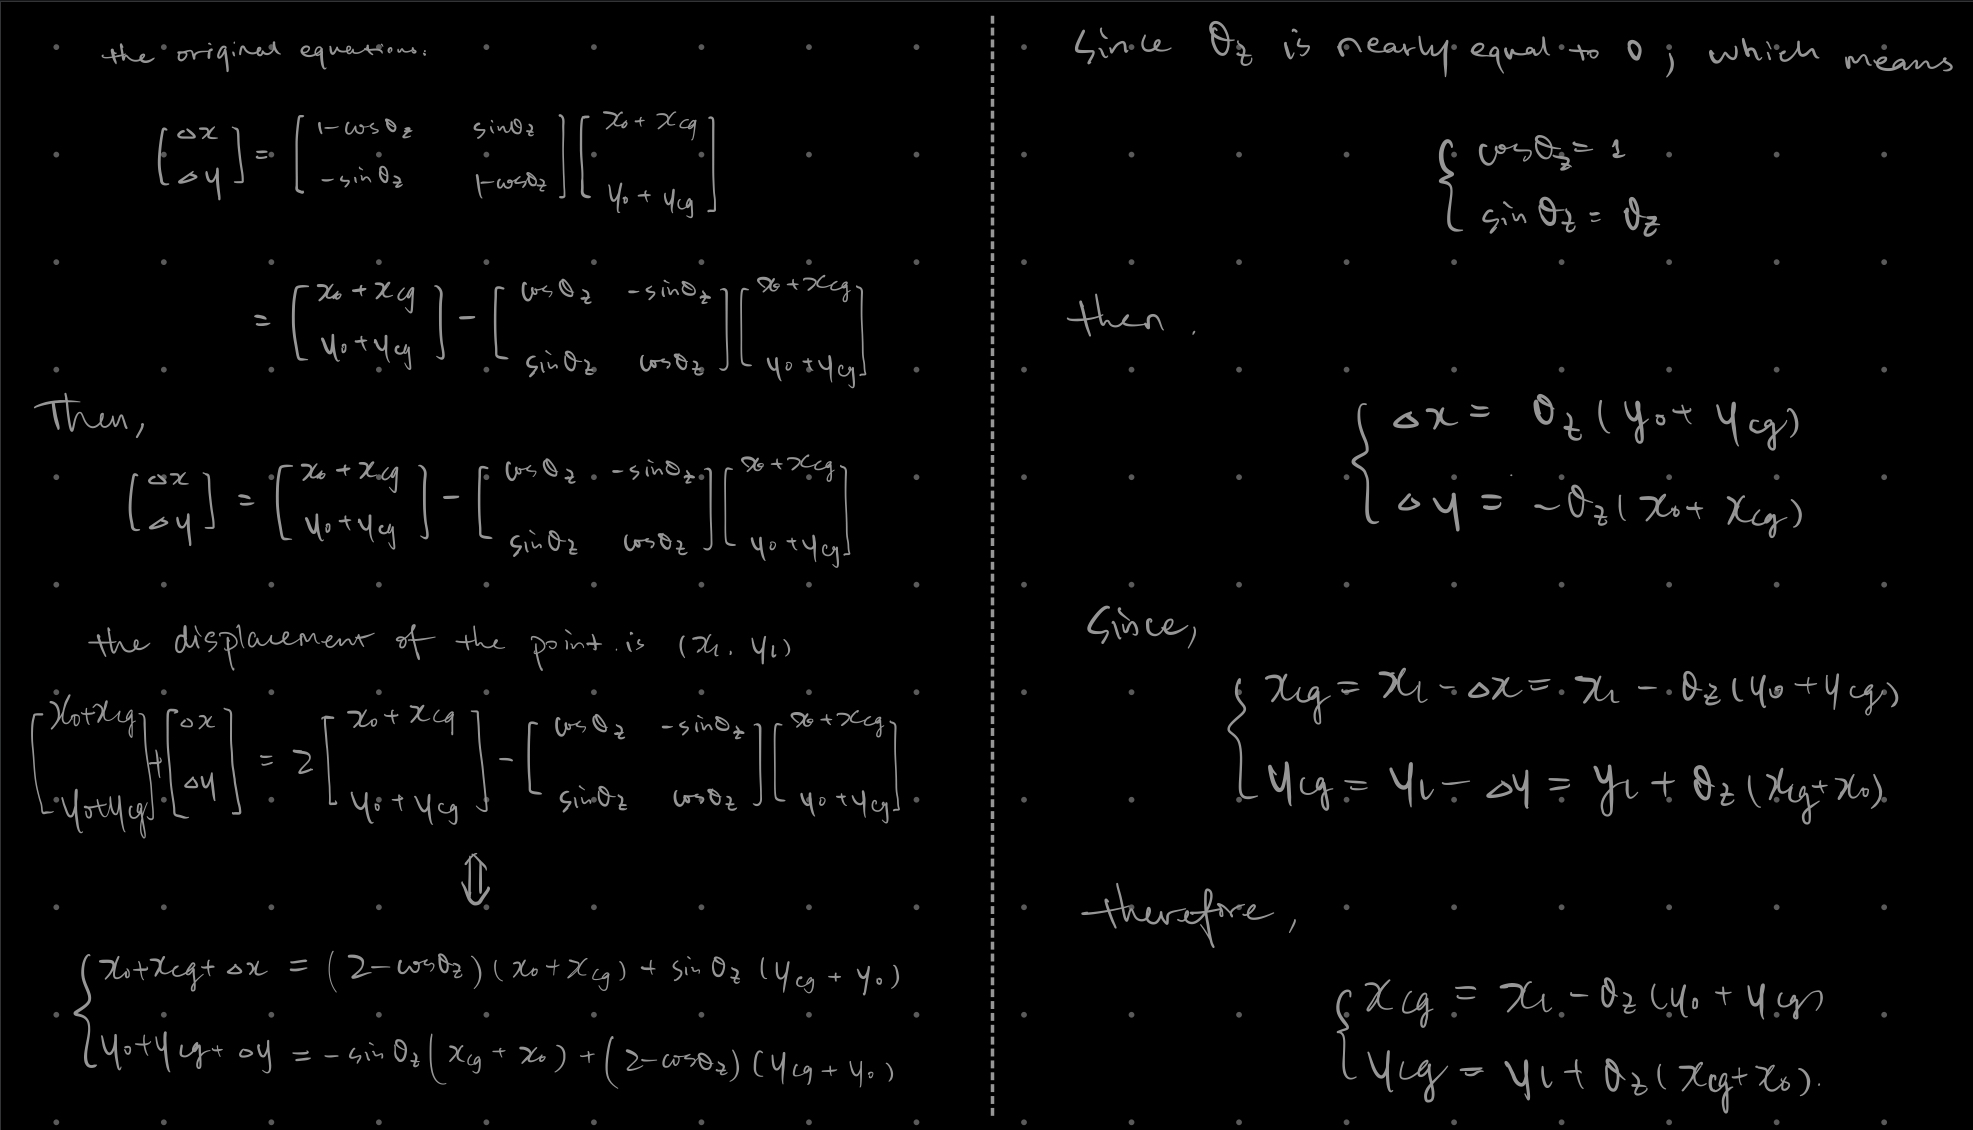 the original equations:
[Δx Δy] = [1-cosθz sinθz -sinθz 1-cosθz] [x0 + xcg y0 + ycg]
= [x0 + xcg y0 + ycg] - [cosθz -sinθz sinθz cosθz] [x0 + xcg y0 + ycg]
Then,
[Δx Δy] = [x0 + xcg y0 + ycg] - [cosθz -sinθz sinθz cosθz] [x0 + xcg y0 + ycg]
the displacement of the point is (x1, y1)
[x0+xcg y0+ycg] + [Δx Δy] = 2 [x0 + xcg y0 + ycg] - [cosθz -sinθz sinθz cosθz] [x0 + xcg y0 + ycg]
⇕
{ x0+xcg+Δx = (2-cosθz)(x0+xcg) + sinθz (ycg + y0)
y0+ycg+Δy = -sinθz (xcg + x0) + (2-cosθz) (ycg + y0)
Since θz is nearly equal to 0; which means
{ cosθz = 1
sinθz = θz
then.
{ Δx = θz (y0 + ycg)
Δy = -θz (x0 + xcg)
Since,
{ xcg = x1 - Δx = x1 - θz (y0 + ycg)
ycg = y1 - Δy = y1 + θz (xcg + x0)
therefore,
{ xcg = x1 - θz (y0 + ycg)
ycg = y1 + θz (xcg + x0).